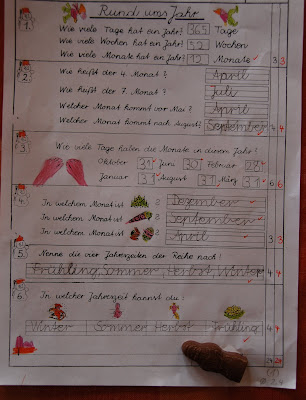 Rund ums Jahr
1. Wie viele Tage hat ein Jahr? 365 Tage
Wie viele Wochen hat ein Jahr? 52 Wochen
Wie viele Monate hat ein Jahr? 12 Monate 3 3
2. Wie heißt der 4. Monat? April
Wie heißt der 7. Monat? Juli
Welcher Monat kommt vor Mai? April
Welcher Monat kommt nach August? September 4 4
3. Wie viele Tage haben die Monate in diesem Jahr?
Oktober 31 Juni 30 Februar 28
Januar 31 August 31 März 31 6
4. In welchem Monat ist ? Dezember
In welchem Monat ist ? September
In welchem Monat ist ? April 3 3
5. Nenne die vier Jahreszeiten der Reihe nach!
Frühling, Sommer, Herbst, Winter 4 4
6. In welcher Jahreszeit kannst du:
Winter Sommer Herbst Frühling 4 4